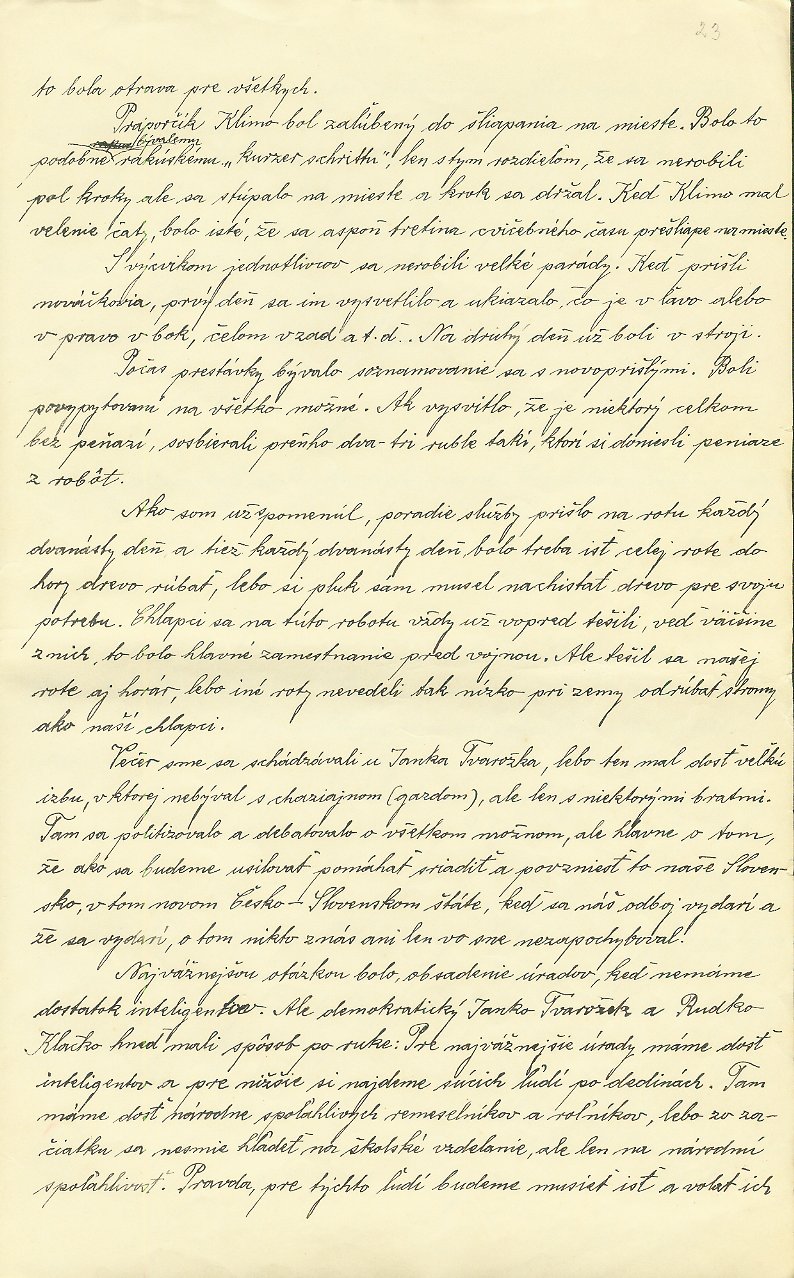 23
to bola otrava pre všetkých.
Práporčík Klimo bol zaľúbený do šliapania na mieste. Bolo to
bývalému
podobné rakúskemu „kurzer schrittu", len s tým rozdielom, že sa nerobili
pol kroky ale sa stúpalo na mieste a krok sa držal. Keď Klimo mal
velenie čaty, bolo isté, že sa aspoň tretina cvičebného času prešliape na mieste.
S výcvikom jednotlivcov sa nerobili veľké parády. Keď prišli
nováčkovia, prvý deň sa im vysvetlilo a ukiazalo, čo je v ľavo alebo
v pravo v bok, čelom vzad a t. ď.. Na druhý deň už boli v stroji.
Počas prestávky bývalo soznamovanie sa s novoprišlými. Boli
povypytovaní na všetko možné. Ak vysvitlo, že je niektorý celkom
bez peňazí, sosbierali preňho dva-tri ruble takí, ktorí si doniesli peniaze
z robôt.
Ako som už spomenúl, poradie služby prišlo na rotu každý
dvanásty deň a tiež každý dvanásty deň, bolo treba ísť celej rote do
hory drevo rúbať, lebo si pluk sám musel nachistať drevo pre svoju
potrebu. Chlapci sa na túto robotu vždy už vopred tešili, veď väčšine
z nich, to bolo hlavné zamestnanie pred vojnou. Ale tešil sa našej
rote aj horár, lebo iné roty nevedeli tak nízko pri zemy odrúbať stromy
ako naší chlapci.
Večer sme sa schádzávali u Janka Tvarožka, lebo ten mal dosť veľkú
izbu, v ktorej nebýval s chaziajnom (gazdom), ale len s niektorými bratmi.
Tam sa politizovalo a debatovalo o všetkom možnom, ale hlavne o tom,
že ako sa budeme usilovať pomáhať sriadiť a povzniesť to naše Sloven-
sko, v tom novom Česko-Slovenskom štáte, keď sa náš odboj vydarí a
že sa vydarí, o tom nikto z nás ani len vo sne nezapochyboval.
Najvážnejšou otázkou bolo, obsadenie úradov, keď nemáme
dostatok inteligentov. Ale demokratický Janko Tvarožek a Rudko
Klačko hneď mali spôsob po ruke: Pre najvážnejšie úrady máme dosť
inteligentov a pre nižšie si najdeme súcich ľudí po dedinách. Tam
máme dosť národne spoľahlivých remeselníkov a roľníkov, lebo zo za-
čiatku sa nesmie hľadeť na školské vzdelanie, ale len na národnú
spoľahlivosť. Pravda, pre týchto ľudí budeme musieť ísť a volať ich